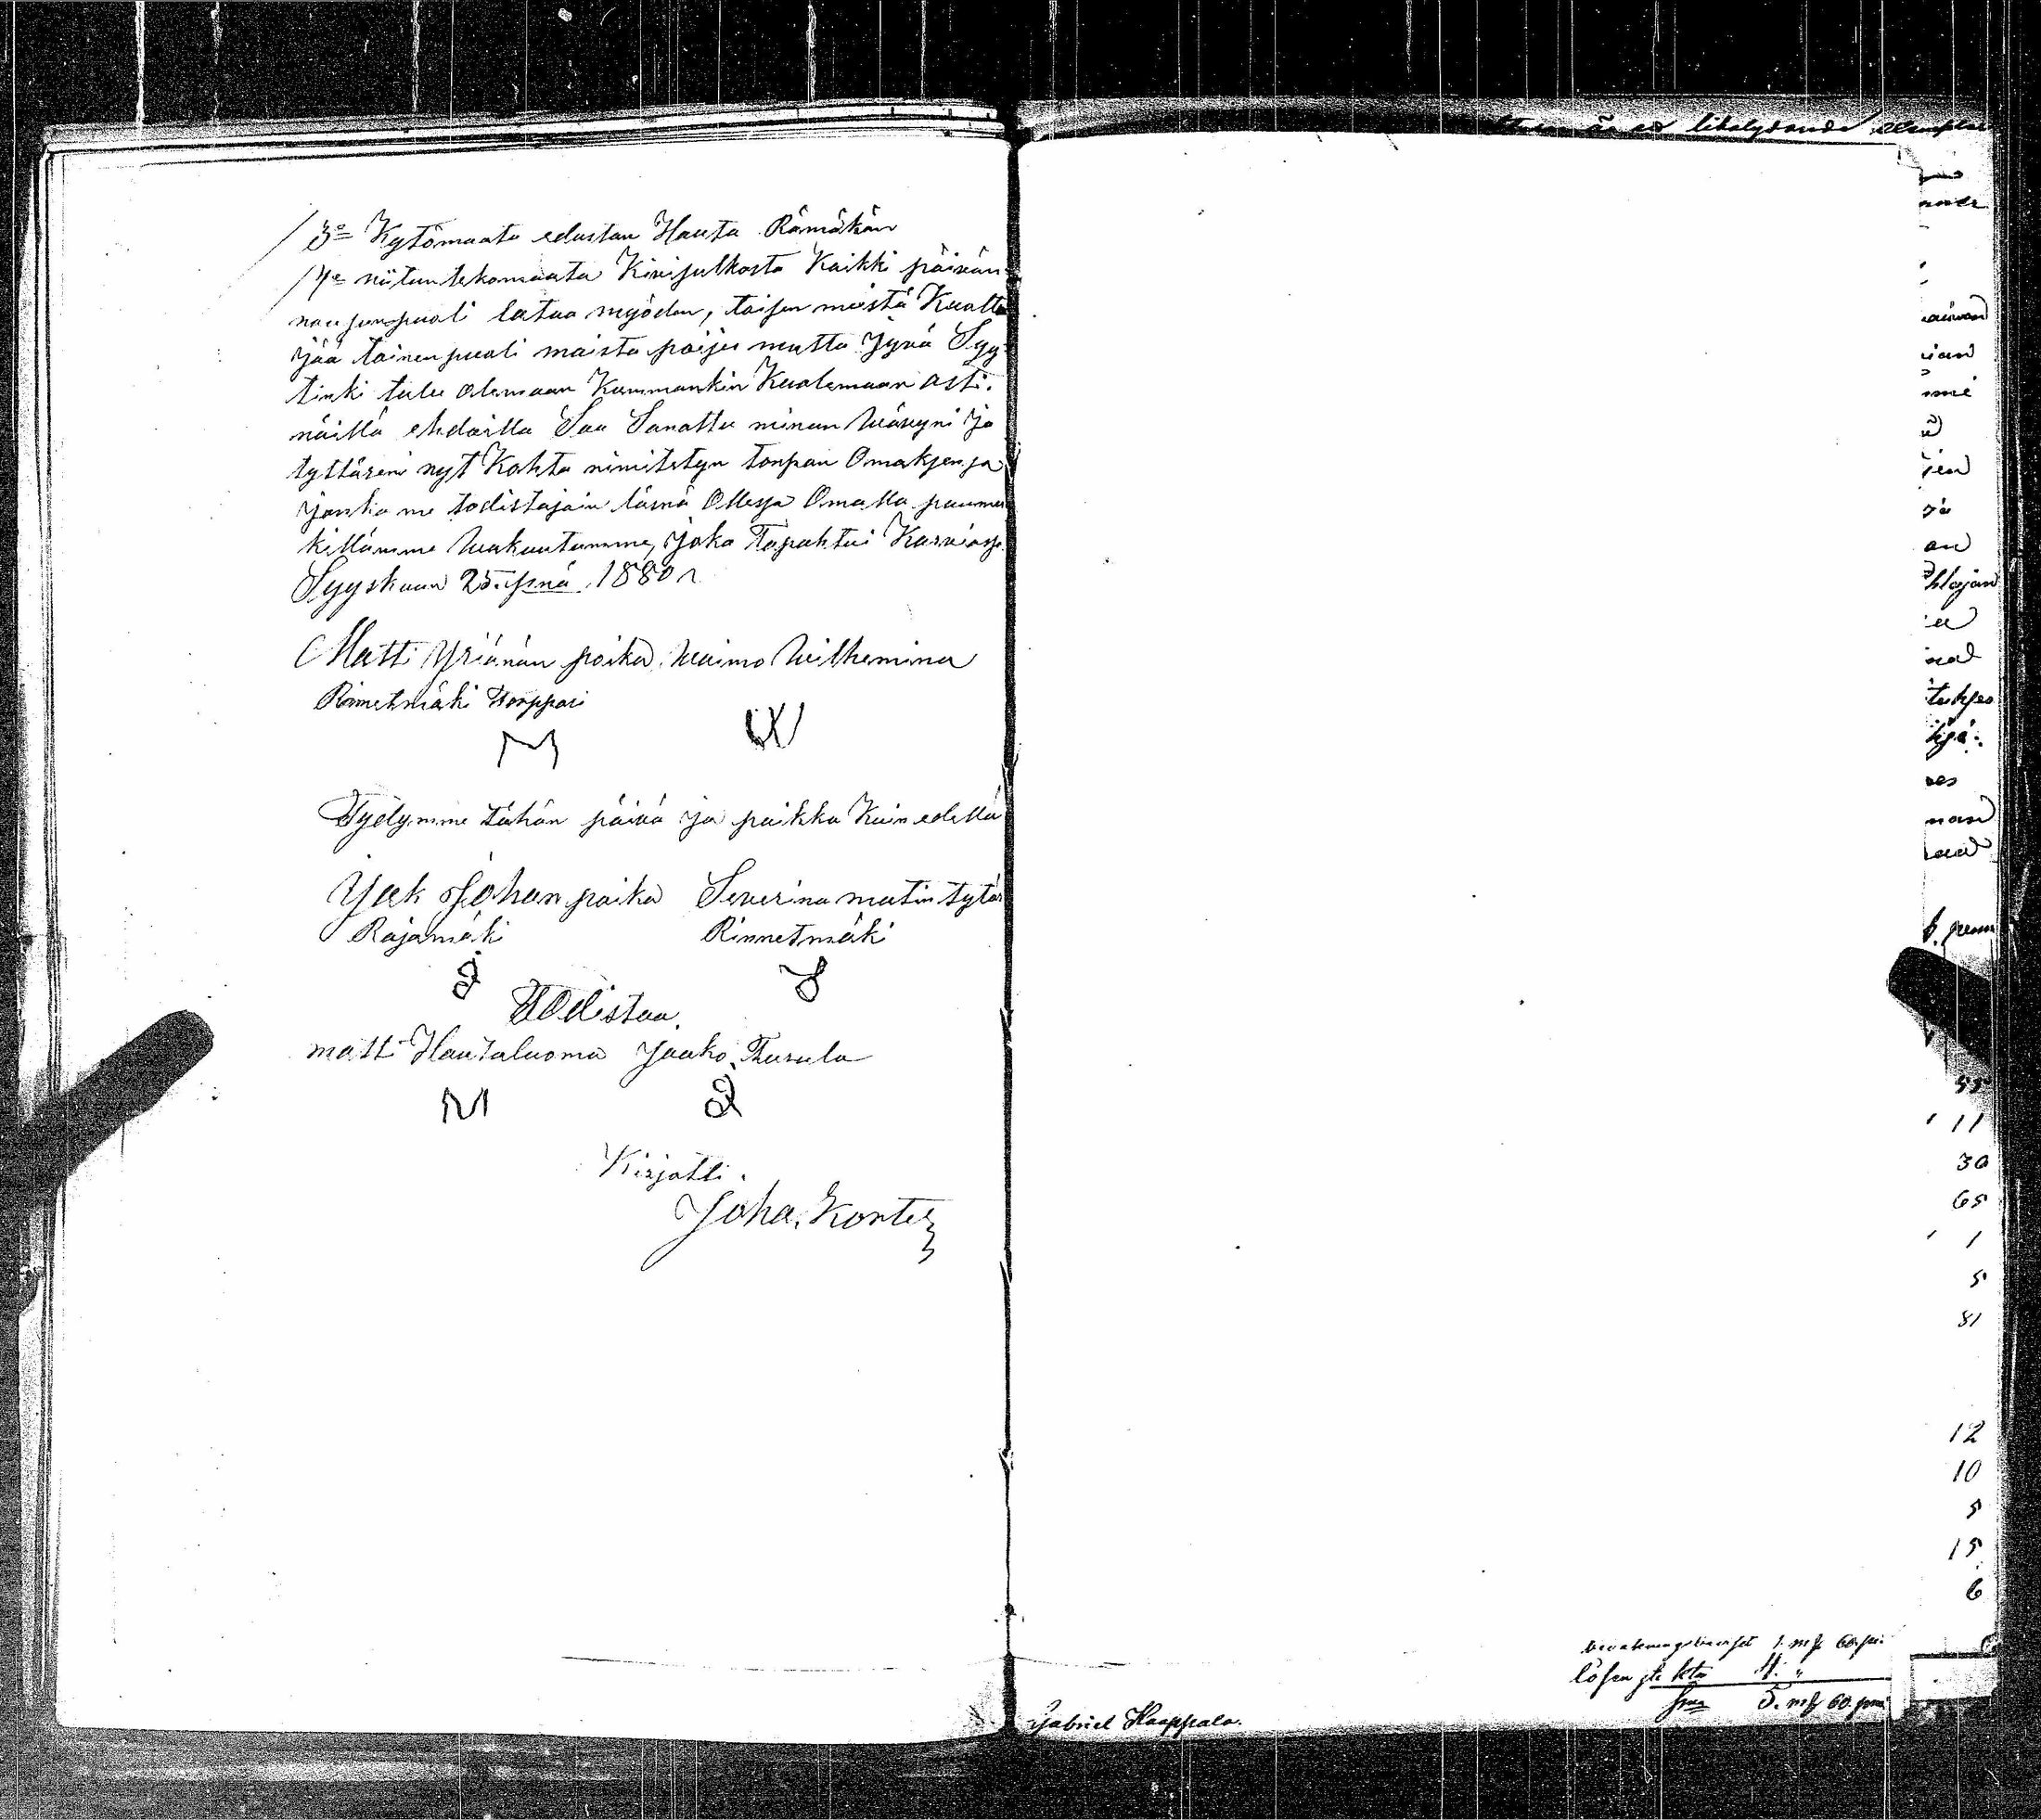 3o Kytömaata edustan Hauta Rämäkän
4o niitun tekomaata Kivijulkosta Kaikki päivän
nousun puoli latua myöden, toisen meistä Kuoltua
jää toinen puoli maista poijes mutta jyvä Syy-
tinki tulee olemaan Kummankin Kuolemaan asti.
näillä ehdoilla Saa Sanottu minun Wävyni ja
tyttäreni nyt Kohta nimitetyn torpan Omaksensa
jonka me todistajain läsnä Ollessa Omalla puumer
killämme Wakuutamme, joka Tapahtui Karviassa
Syyskuun 25. ssnä 1880
Matti Yrjänän poika, Waimo Wilhemina
Rinnetmäki Torppari
M W
Tydymme tähän päivä ja paikka Kuin edellä
Jaak Johan poika Severina matin tytär
Rajamäki Rinnetmäki
Todistaa.
matti Hautaluoma Jaako
M
Kirjotti.
Joha. Konte
är ett likalydande
hlajan
tukses
nan
55
11
30
65
1
5
81
12
10
5
15
6
1. mk 60. pi.
lösen 4. "
Sma 5. mk 60. pni
Gabriel Haappala.